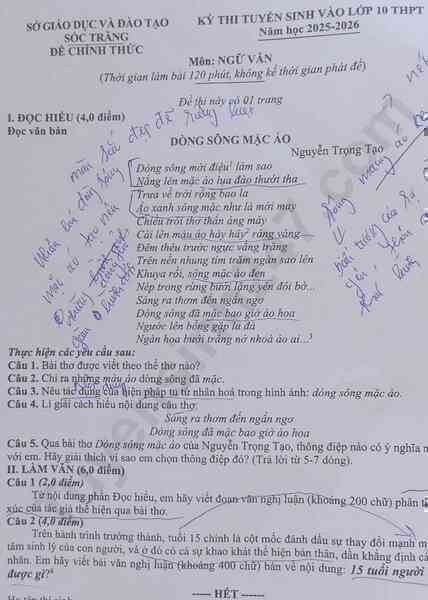 SỞ GIÁO DỤC VÀ ĐÀO TẠO
SÓC TRĂNG
ĐỀ CHÍNH THỨC
KỲ THI TUYỂN SINH VÀO LỚP 10 THPT
Năm học 2025-2026
Môn: NGỮ VĂN
(Thời gian làm bài 120 phút, không kể thời gian phát đề)
Đề thi này có 01 trang
I. ĐỌC HIỂU (4,0 điểm)
Đọc văn bản
DÒNG SÔNG MẶC ÁO
Nguyễn Trọng Tạo
Dòng sông mới điệu¹ làm sao
Nắng lên mặc áo lụa đào thướt tha
Trưa về trời rộng bao la
Áo xanh sông mặc như là mới may
Chiều trôi thơ thẩn áng mây
Cài lên màu áo hây hây² ráng vàng
Đêm thêu trước ngực vầng trăng
Trên nền nhung tím trăm ngàn sao lên
Khuya rồi, sông mặc áo đen
Nép trong rừng bưởi lặng yên đôi bờ...
Sáng ra thơm đến ngẩn ngơ
Dòng sông đã mặc bao giờ áo hoa
Ngước lên bỗng gặp la đà
Ngàn hoa bưởi trắng nở nhoà áo ai...³
Thực hiện các yêu cầu sau:
Câu 1. Bài thơ được viết theo thể thơ nào?
Câu 2. Chỉ ra những màu áo dòng sông đã mặc.
Câu 3. Nêu tác dụng của biện pháp tu từ nhân hoá trong hình ảnh: dòng sông mặc áo.
Câu 4. Lí giải cách hiểu nội dung câu thơ:
Sáng ra thơm đến ngẩn ngơ
Dòng sông đã mặc bao giờ áo hoa
Câu 5. Qua bài thơ Dòng sông mặc áo của Nguyễn Trọng Tạo, thông điệp nào có ý nghĩa
với em. Hãy giải thích vì sao em chọn thông điệp đó? (Trả lời từ 5-7 dòng).
II. LÀM VĂN (6,0 điểm)
Câu 1 (2,0 điểm)
Từ nội dung phần Đọc hiểu, em hãy viết đoạn văn nghị luận (khoảng 200 chữ) phân
xúc của tác giả thể hiện qua bài thơ.
Câu 2 (4,0 điểm)
Trên hành trình trưởng thành, tuổi 15 chính là cột mốc đánh dấu sự thay đổi mạnh m
tâm sinh lý của con người, và ở đó có cả sự khao khát thể hiện bản thân, dần khẳng định cá
nhân. Em hãy viết bài văn nghị luận (khoảng 400 chữ) bàn về nội dung: 15 tuổi người
được gì?
----- HẾT -----